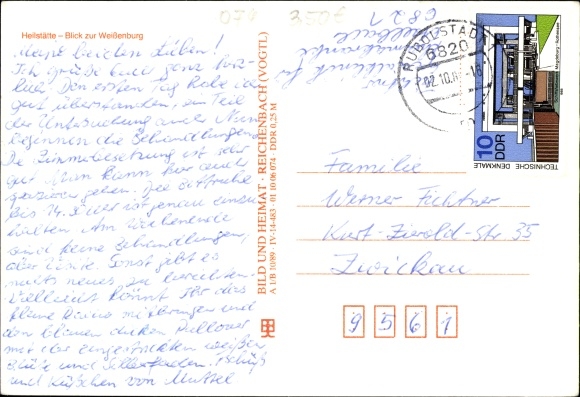 Heilstätte – Blick zur Weißenburg
Ihr beiden Lieben!
Ich grüße Euch ganz herz-
lich. Den ersten Tag habe ich
gut überstanden, ein Teil
der Untersuchung auch. Nun
beginnen die Behandlungen.
Die Zimmerbesetzung ist sehr
gut. Man kann hier auch
spazieren gehen. Die
bis 14.
halten. Am Wochenende
sind keine Behandlungen,
aber Visite. Sonst gibt es
nichts neues zu berichten.
Vielleicht könnt Ihr das
kleine Radio mitbringen und
den blauen dicken Pullover
mit der eingestrickten weißen
und Tschüß
und Küßchen von Muttel
BILD UND HEIMAT · REICHENBACH (VOGTL)
A 1/B 10/89 · IV-14-483 · 01 10 06 074 / DDR 0,25 M
079 2,50€
6821
RUDOLSTADT
6820
02.10.
10
DDR
TECHNISCHE DENKMALE
Magdeburg-Rothensee
Familie
Werner Fichtner
Kurt-Ziwold-Str. 35
Zwickau
9561